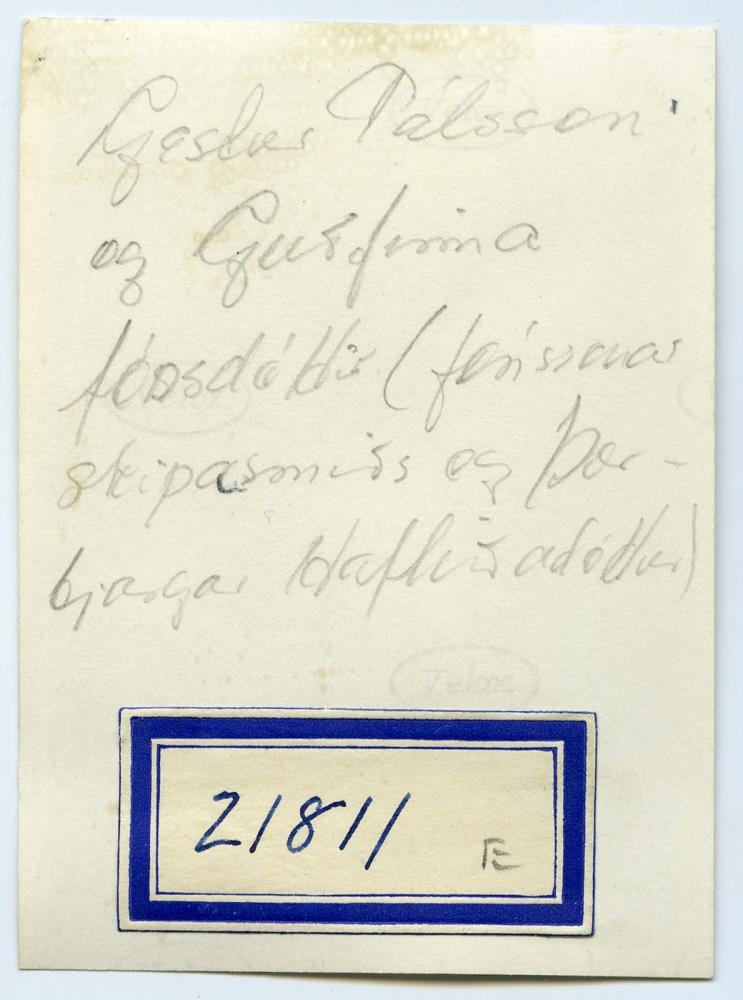 Gestur Pálsson
og Guðfinna
Jónsdóttir (Jónssonar
skipasmiðs og Þor-
bjargar Hafliðadóttur)
Velox
21811 E